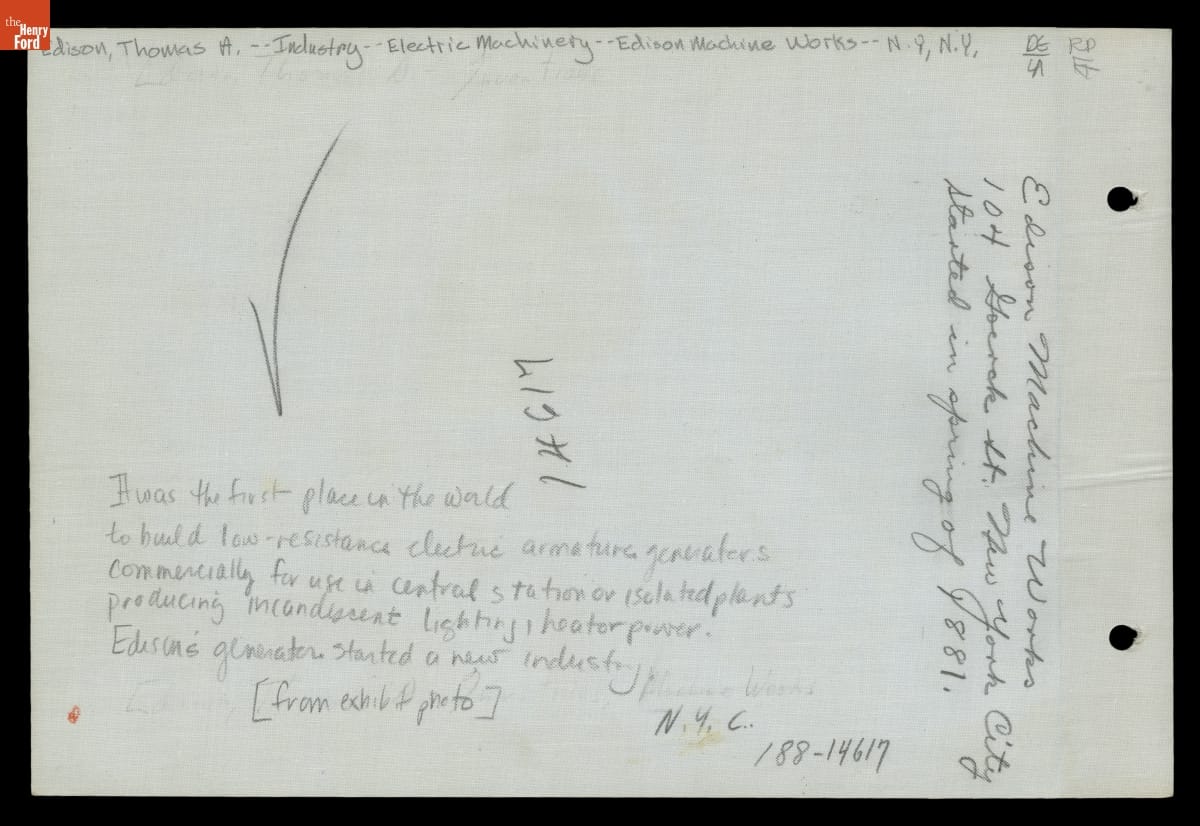 the
Henry
Ford
Edison, Thomas A. -- Industry -- Electric Machinery -- Edison Machine Works -- N.Y., N.Y.
DE
Edison, Thomas A
Edison Machine Works
104 Goerck St. New York City
Started in spring of 1881.
It was the first place in the world
to build low-resistance electric armature generators
commercially for use in central station or isolated plants
producing incandescent lighting, heat or power.
Edison's generator started a new industry
[from exhibit photo]
Machine Works
N.Y.C.
188-14617